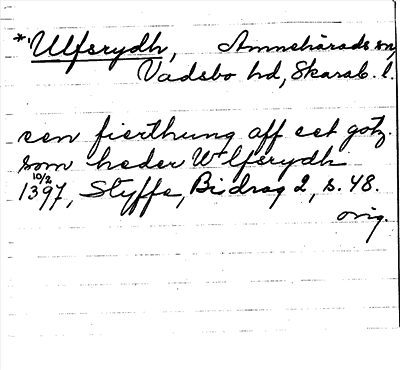 *Ulfsrydh, Amnehärads sn,
Vadsbo hd, Skarab. l.
een fierthung aff eet gotz.
som heder Wlfsrydh
10/2
1397, Styffe, Bidrag 2, s. 48.
orig.